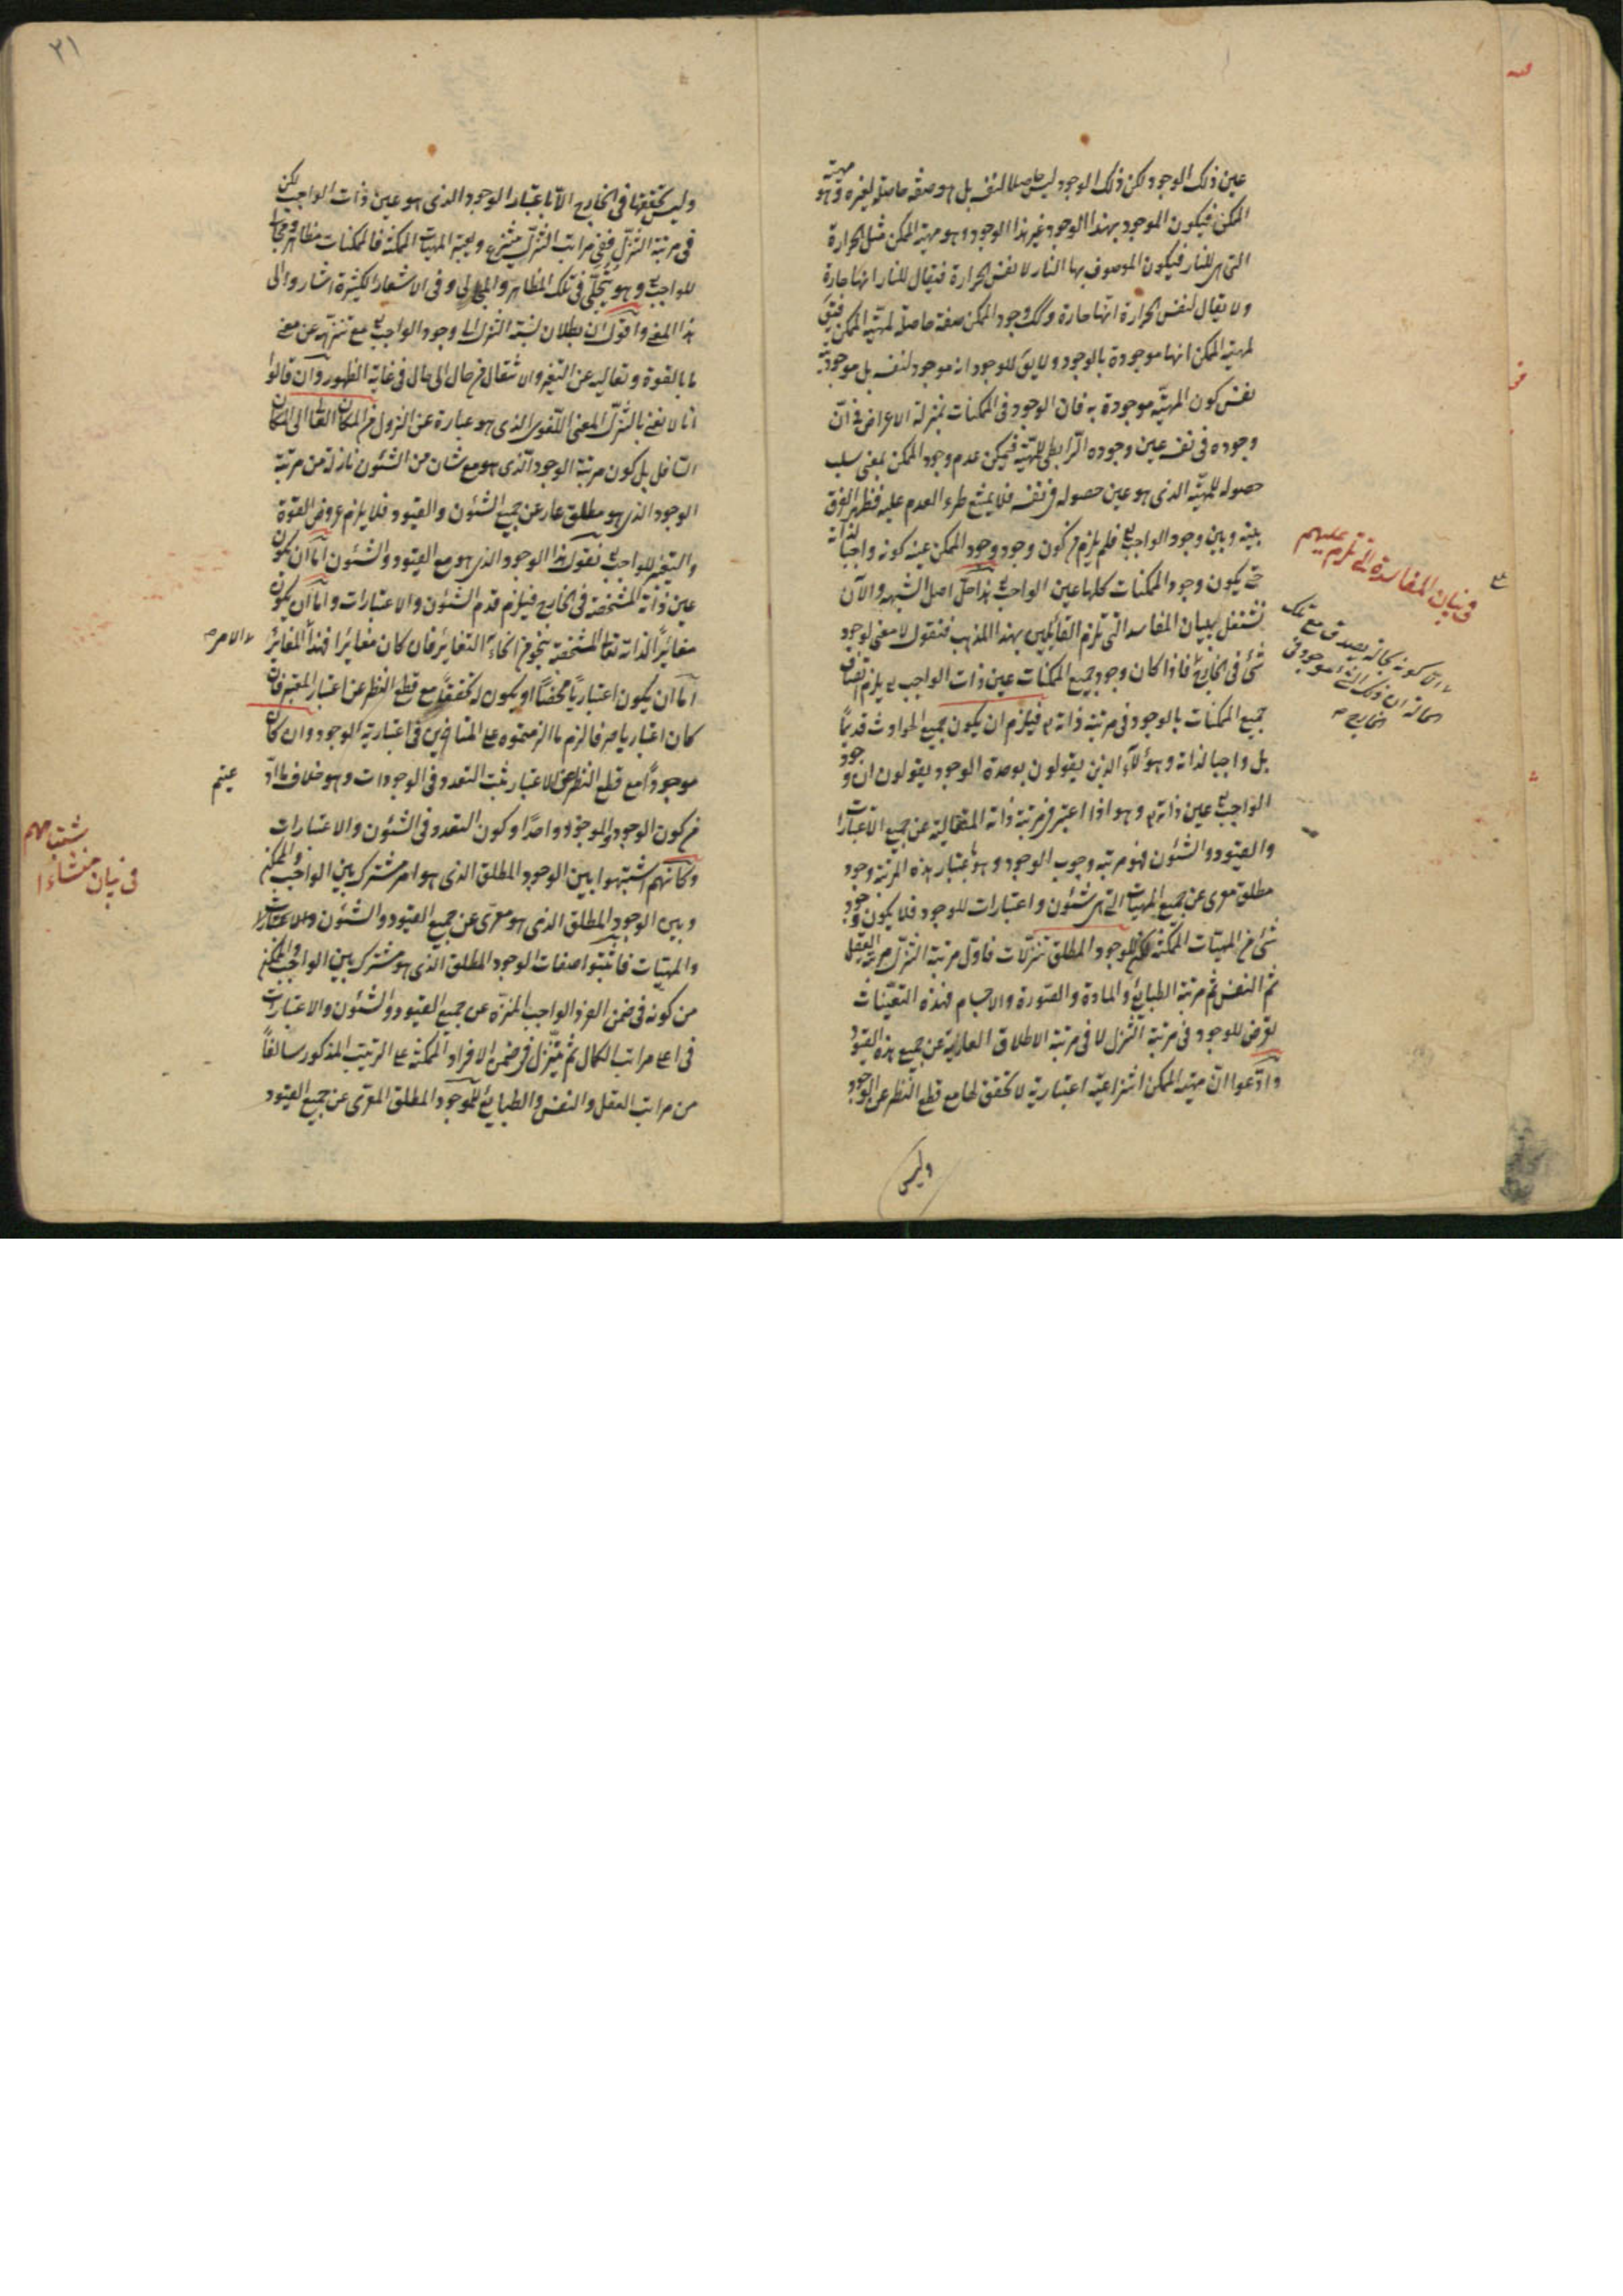 عين ذلك الوجود لكن ذلك الوجود ليس حاصلا لنفسه بل هو صفة حاصلة لغيره وهو مهية
الممكن فيكون الموجود بهذا الوجود غير هذا الوجود وهو مهية الممكن مثل الحرارة
التى هى للنار فيكون الموصوف بها النار لا نفس الحرارة فيقال للنار انها حارة
ولا يقال لنفس الحرارة انها حارة وكك وجود الممكن صفة حاصلة لمهية الممكن فيق
لمهية الممكن انها موجودة بالوجود ولا يق للوجود انه موجود لنفسه بل موجوديته
نفس كون المهية موجودة به فان الوجود فى الممكنات بمنزلة الاعراض فى انّ
وجوده فى نفسه عين وجوده الرابطى للمهية فيمكن عدم وجود الممكن بمعنى سلب
حصوله للمهية الذى هو عين حصوله فى نفسه فلا يمتنع طرء العدم عليه فظهر الفرق
بينه وبين وجود الواجب تع فلم يلزم من كون وجود وجود الممكن عينه كونه واجبا لذاته
حتى يكون وجود الممكنات كلها عين الواجب تع هذا حل اصل الشبهه والآن
نشتغل ببيان المفاسد التى تلزم القائلين بهذا المذهب فنقول لا معنى لوجود
شئ فى الخارج فاذا كان وجود جميع الممكنات عين ذات الواجب تع يلزم اتصاف
جميع الممكنات بالوجود فى مرتبة ذاته تع فيلزم ان يكون جميع الحوادث قديمًا
بل واجبا لذاته وهؤلآء الذين يقولون بوحدة الوجود يقولون ان وجود
الواجب تع عين ذاته تع وهو اذا اعتبر فى مرتبة ذاته المتعالية عن جميع الاعتبارات
والقيود والشئون فهو مرتبه وجوب الوجود وهو باعتبار هذه المرتبة وجود
مطلق معرى عن جميع المهيات التى هى شئون واعتبارات للوجود فلا يكون وجود
شئ من المهيات الممكنة لكن للوجود المطلق تنزّلات فاول مرتبة التنزل مرتبة العقل
ثم النفس ثم مرتبة الطبايع والمادة والصورة والاجسام فهذه التعيّنات
تعرض للوجود فى مرتبة التنزل لا فى مرتبة الاطلاق العارية عن جميع هذه القيود
وادّعوا انّ مهية الممكن انتزاعية اعتبارية لا تحقق لها مع قطع النظر عن الوجود
وليس
فى بيان المفاسد التى تلزم عليهم
الا كونه بحاله يصدق مع تلك
الحاله ان ذلك الشئ موجود فى
الخارج صح
٢١
وليس تحققها فى الخارج الا باعتبار الوجود الذى هو عين ذات الواجب لكن
فى مرتبة التنزل ففى مراتب التنزل ينتزع ويعتبر المهيات الممكنة فالممكنات مظاهر ومجالى
للواجب تع وهو يتجلّى فى تلك المظاهر والمجالى وفى الاشعار الكثيرة اشاروا الى
هذا المعنى واقول ان بطلان نسبة التنزل الى وجود الواجب تع مع تنزهه عن معنى
ما بالقوة وتعاليه عن التغير والانتقال من حال الى حال فى غاية الظهور وان قالوا
انا لا نعنى بالتنزل المعنى اللغوى الذى هو عبارة عن النزول من المكان العالى الى المكان
السافل بل كون مرتبة الوجود الذى هو مع شان من الشئون نازلة من مرتبة
الوجود الذى هو مطلق عار عن جميع الشئون والقيود فلا يلزم عروض القوة
والتغير للواجب تع نقول هذا الوجود الذى هو مع القيود والشئون اما ان يكون
عين ذاته المشخصة فى الخارج فيلزم قدم الشئون والاعتبارات واما ان يكون
مغايرًا لذاته تعالى المشخصة بنحو من انحاء التغاير فان كان مغايرا فهذا المغاير
امّا ان يكون اعتباريًا محضًا او يكون له تحقق مع قطع النظر عن اعتبار المعتبر فان
كان اعتباريا صرفا لزم ما الزمتموه على المتأخرين فى اعتبارية الوجود وان كان
موجودًا مع قطع النظر عن الاعتبار ثبت التعدد فى الوجودات وهو خلاف ما ادّ
عيتم
من كون الوجود والموجود واحدًا وكون التعدد فى الشئون والاعتبارات
وكانهم اشتبهوا بين الوجود المطلق الذى هو امر مشترك بين الواجب والممكن
وبين الوجود المطلق الذى هو معرّى عن جميع القيود والشئون والاعتبارات
والمهيات فاثبتوا صفات الوجود المطلق الذى هو مشترك بين الواجب والممكن
من كونه فى ضمن الفرد الواجب المنزّه عن جميع القيود والشئون والاعتبارات
فى اعلى مراتب الكمال ثم يتنزل فى ضمن الافراد الممكنة على الترتيب المذكور سالفًا
من مراتب العقل والنفس والطبايع للموجود المطلق المعرى عن جميع القيود
والامر صح
فى بيان منشاء ا
شتباههم